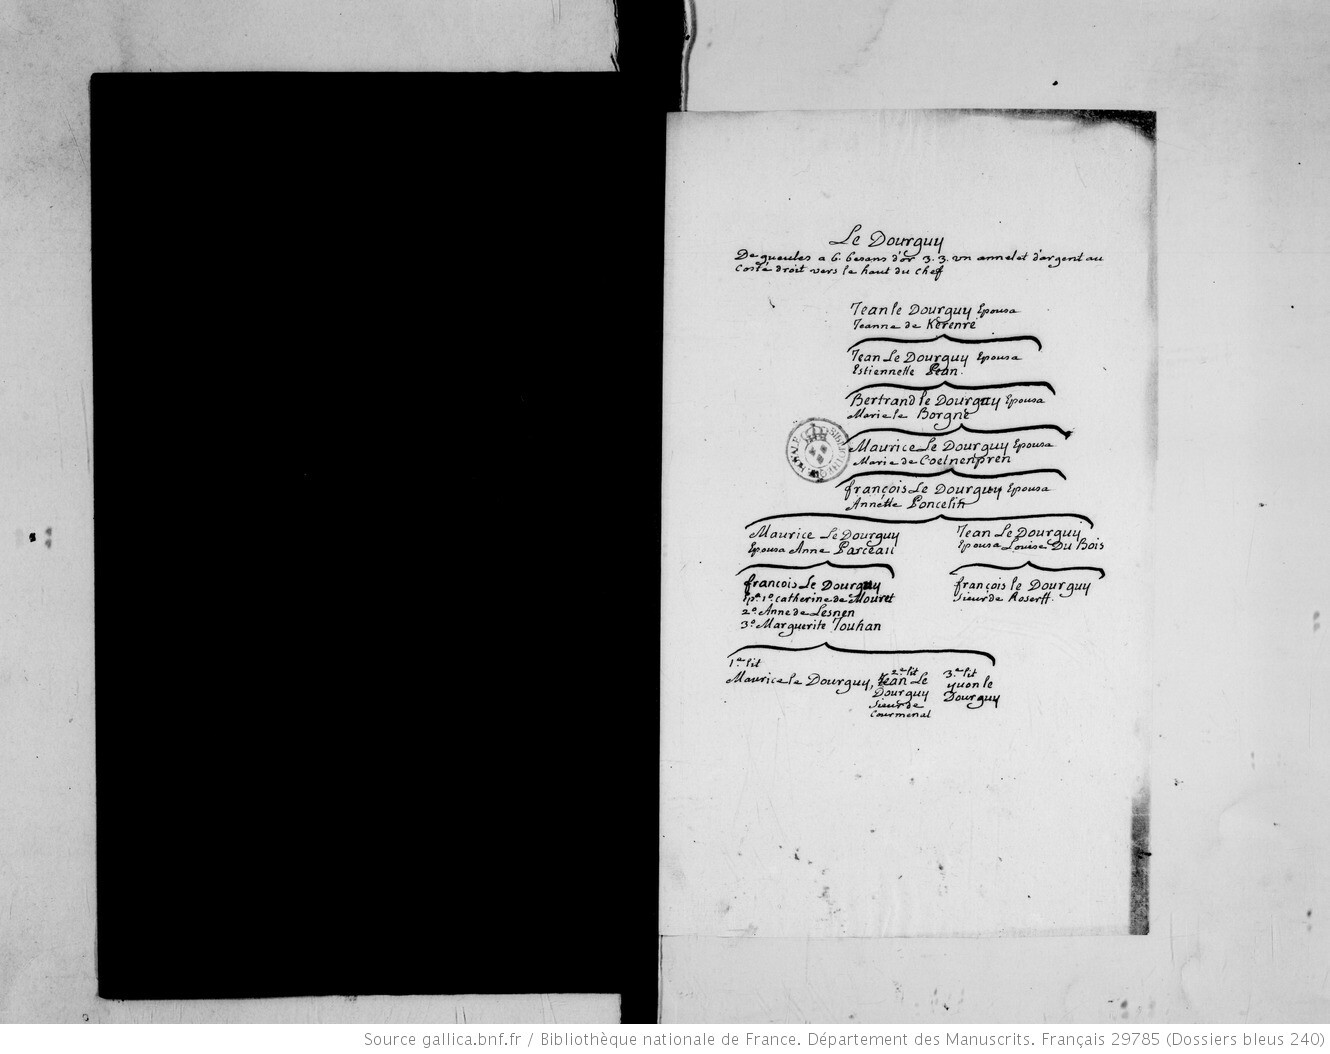 Le Dourguy
De gueules a 6. besans d'or 3. 3. un annelet d'argent au
costé droit vers le haut du chef
Jean le Dourguy Epousa
Jeanne de Kerenré
Jean Le Dourguy Epousa
Estiennette Pean.
Bertrand le Dourguy Epousa
Marie le Borgne
Maurice Le Dourguy Epousa
Marie de Coetnenpren
françois Le Dourguy Epousa
Annette Poncelin
Maurice Le Dourguy
Epousa Anne Parceau
Jean Le Dourguy
Epousa Louise Du Bois
francois Le Dourguy
Epa. 1o. catherine de Mouret
2o. Anne de Lesnen
3o. Marguerite Touhan
françois le Dourguy
sieur de Roserff.
1er. lit
Maurice le Dourguy,
2e. lit
Jean Le
Dourguy
sieur de
Courmenal
3e. lit
yuon le
Dourguy
Source gallica.bnf.fr / Bibliothèque nationale de France. Département des Manuscrits. Français 29785 (Dossiers bleus 240)